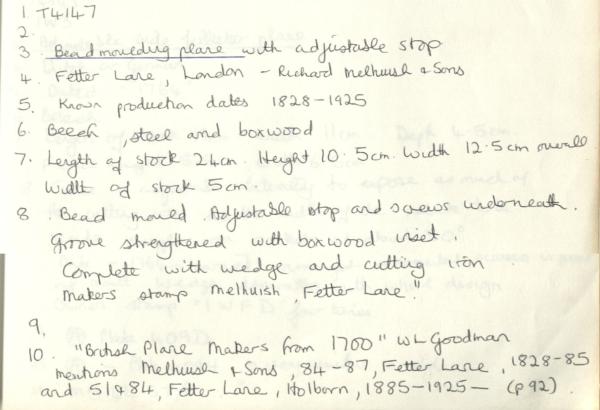 1. T4147
2.
3. Bead moulding plane with adjustable stop
4. Fetter Lane, London - Richard Melhuish & Sons
5. Known production dates 1828-1925
6. Beech, steel and boxwood
7. Length of stock 24cm. Height 10.5cm. Width 12.5cm overall.
Width of stock 5cm.
8. Bead mould. Adjustable stop and screws underneath.
Groove strengthened with boxwood inset.
Complete with wedge and cutting iron
Makers stamp Melhuish, Fetter Lane."
9.
10. "British Plane Makers from 1700" W L Goodman
mentions Melhuish & Sons, 84-87, Fetter Lane, 1828-85
and 51 & 84, Fetter Lane, Holborn, 1885-1925 - (p 92)